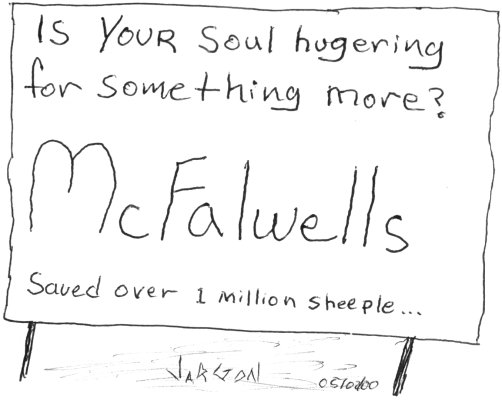 Is Your Soul hugering
for something more?
McFalwells
Saved over 1 million sheeple...
JARGON